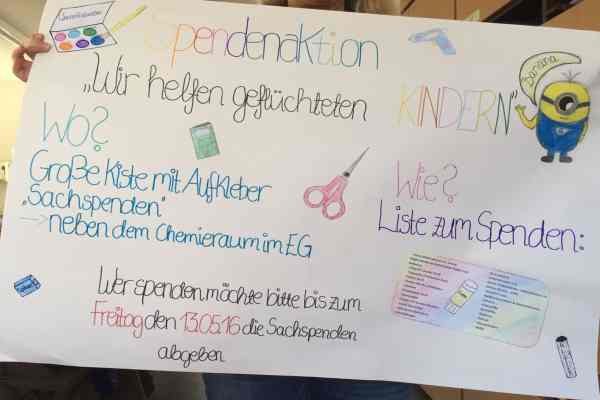 Spendenaktion
„Wir helfen geflüchteten KINDERN"
Banana
Wo?
Große Kiste mit Aufkleber
„Sachspenden"
→ neben dem Chemieraum im EG
Wie?
Liste zum Spenden:
Wer spenden möchte bitte bis zum
Freitag den 13.05.16 die Sachspenden
abgeben